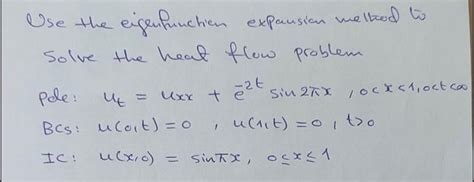 Use the eigenfunction expansion method to
solve the heat flow problem
pde: u_t = u_xx + e^{-2t} sin 2πx , 0<x<1, 0<t<∞
BCs: u(0,t)=0 , u(1,t)=0 , t>0
IC: u(x,0) = sin πx , 0≤x≤1